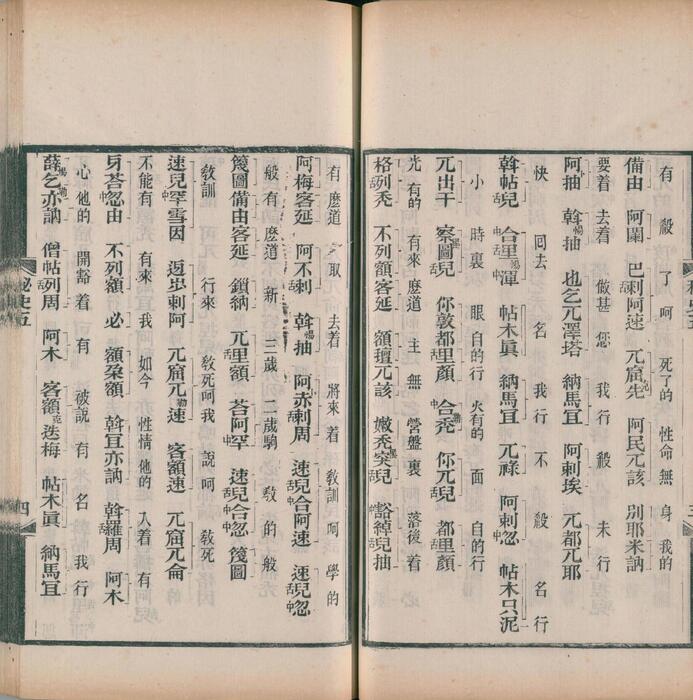 有 殺了呵 死了的 性命無 身我的
備由 阿闌 巴剌阿速 兀窟先 阿民兀該 別耶米訥
要着 去着 做甚 您 我行 殺 未行
阿抽 斡抽 也乞兀澤塔 納馬宜 阿剌埃 兀都兀耶
快 回去 名 我行 不 殺 名行
斡帖兒 合里渾 帖木眞 納馬宜 兀祿 阿剌忽 帖木只泥
小 時裏 眼自的行 火有的 面 自的行
兀出干 察圖兒 你敦都里顏 合禿 你兀兒 都里顏
光 有的 有來 麽道 主 無 營盤裏 落後着
格列禿 不列額客延 額壇兀該 嫩禿突兒 豁綽兒抽
有 麽道 取 去着 將來着 敎訓呵 學的
阿梅客延 阿不剌 斡抽 阿赤剌周 速兒合阿速 速兒忽
般有 麽道 新 三歲 二歲駒 敎的般
篾圖備由客延 鎖納 兀里額 荅阿罕 速兒合忽 篾圖
敎訓 行來 敎死呵我 說呵 敎死
速兒罕雪因 迓步剌阿 兀窟兀速 客額速 兀窟兀侖
不能有 有來 我 阿如今 性情他的 入着 有
牙荅忽由 不列額 必 額朶額 斡宜亦訥 斡羅周 阿木
心他的 開豁着 有 被說有 名 我行
薛乞亦訥 僧帖列周 阿木 客額迭梅 帖木眞 納馬宜
秘史五
四